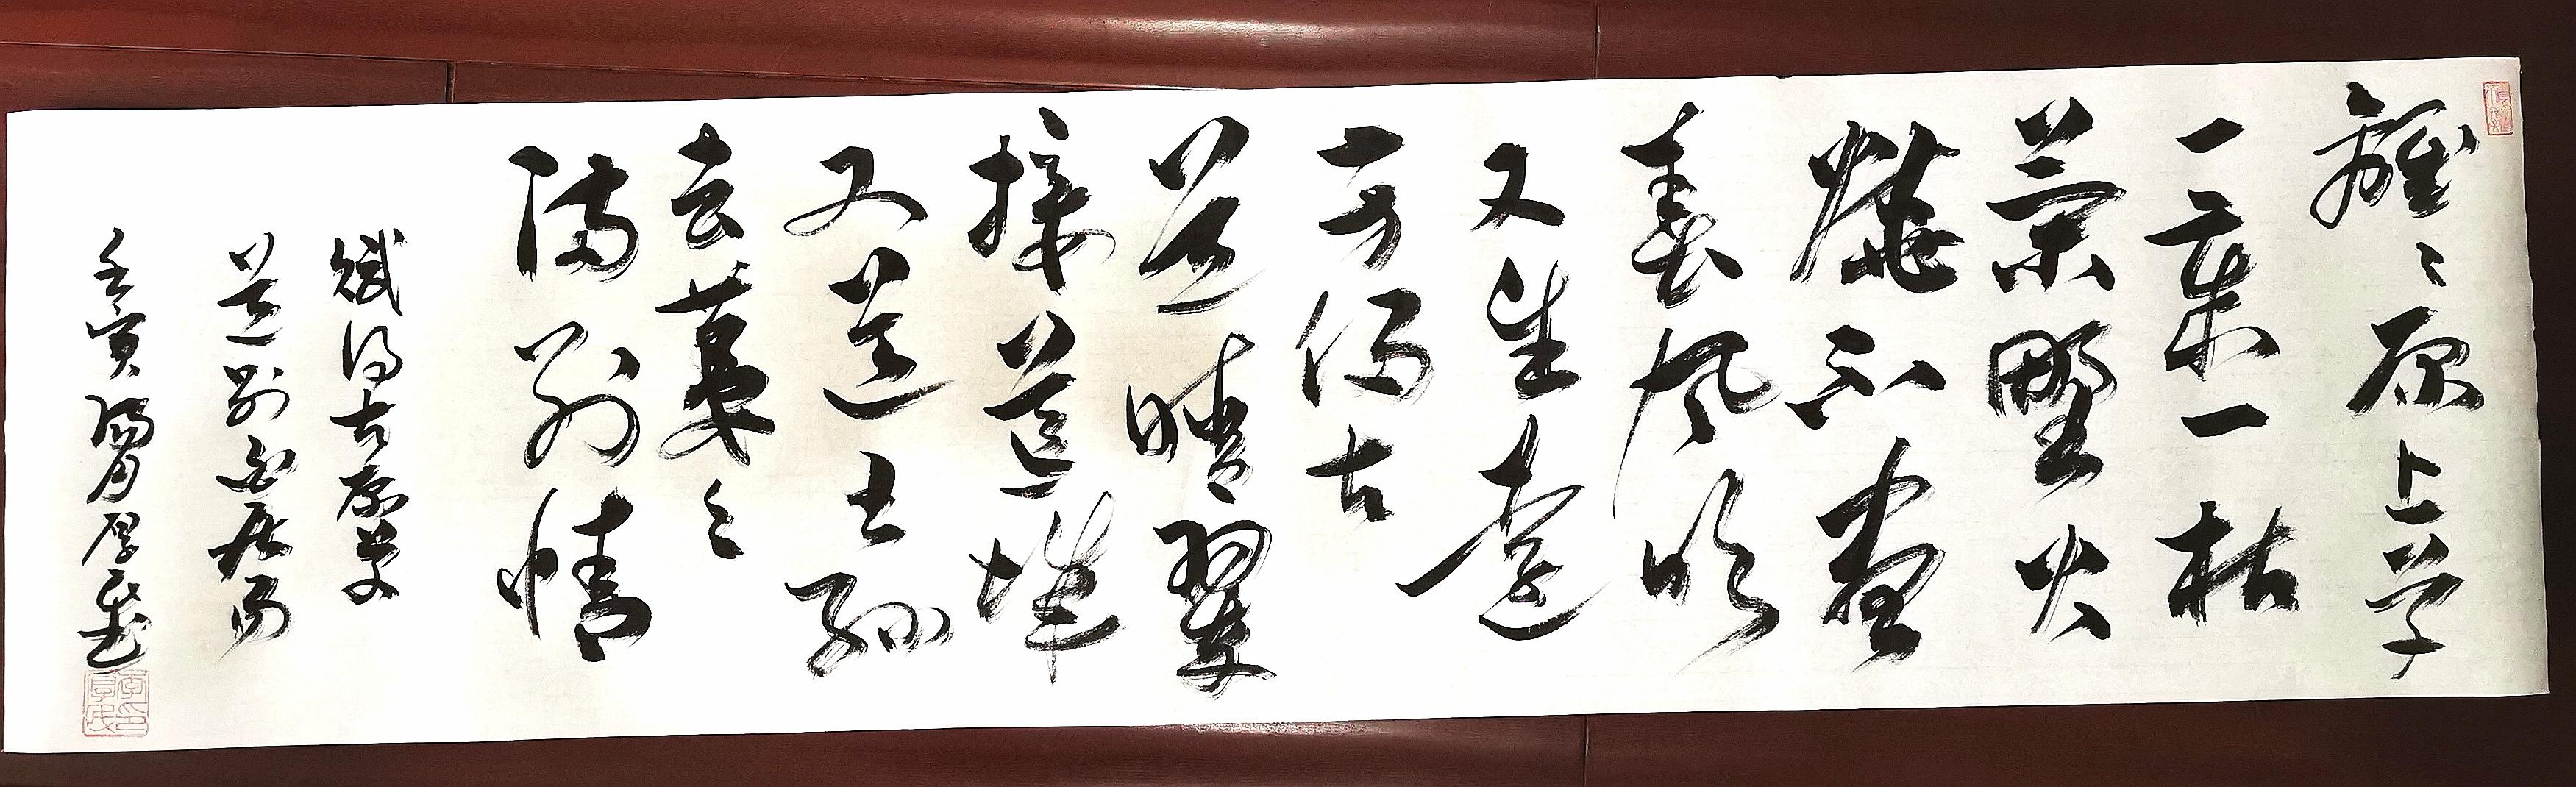 離々原上草
一歲一枯
榮野火
燒不盡
春風吹
又生遠
芳侵古
道晴翠
接荒城
又送王孫
去萋々
滿別情
賦得古原草
送別白居易
壬寅陽月厚